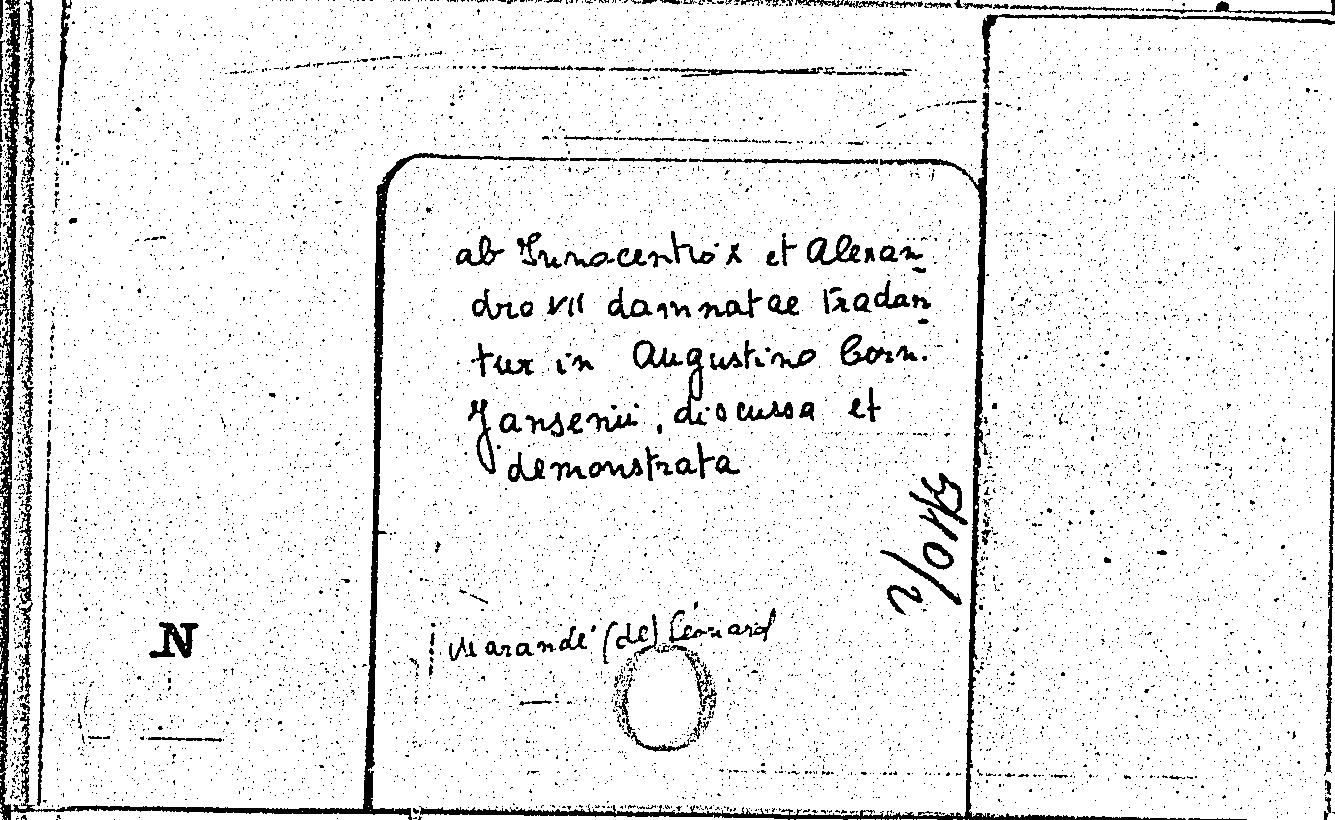 ab Innocentio X et Alexan-
dro VII damnatae tradan-
tur in Augustino Corn.
Jansenii, discussa et
demonstrata
Marandé (de) Léonard
N